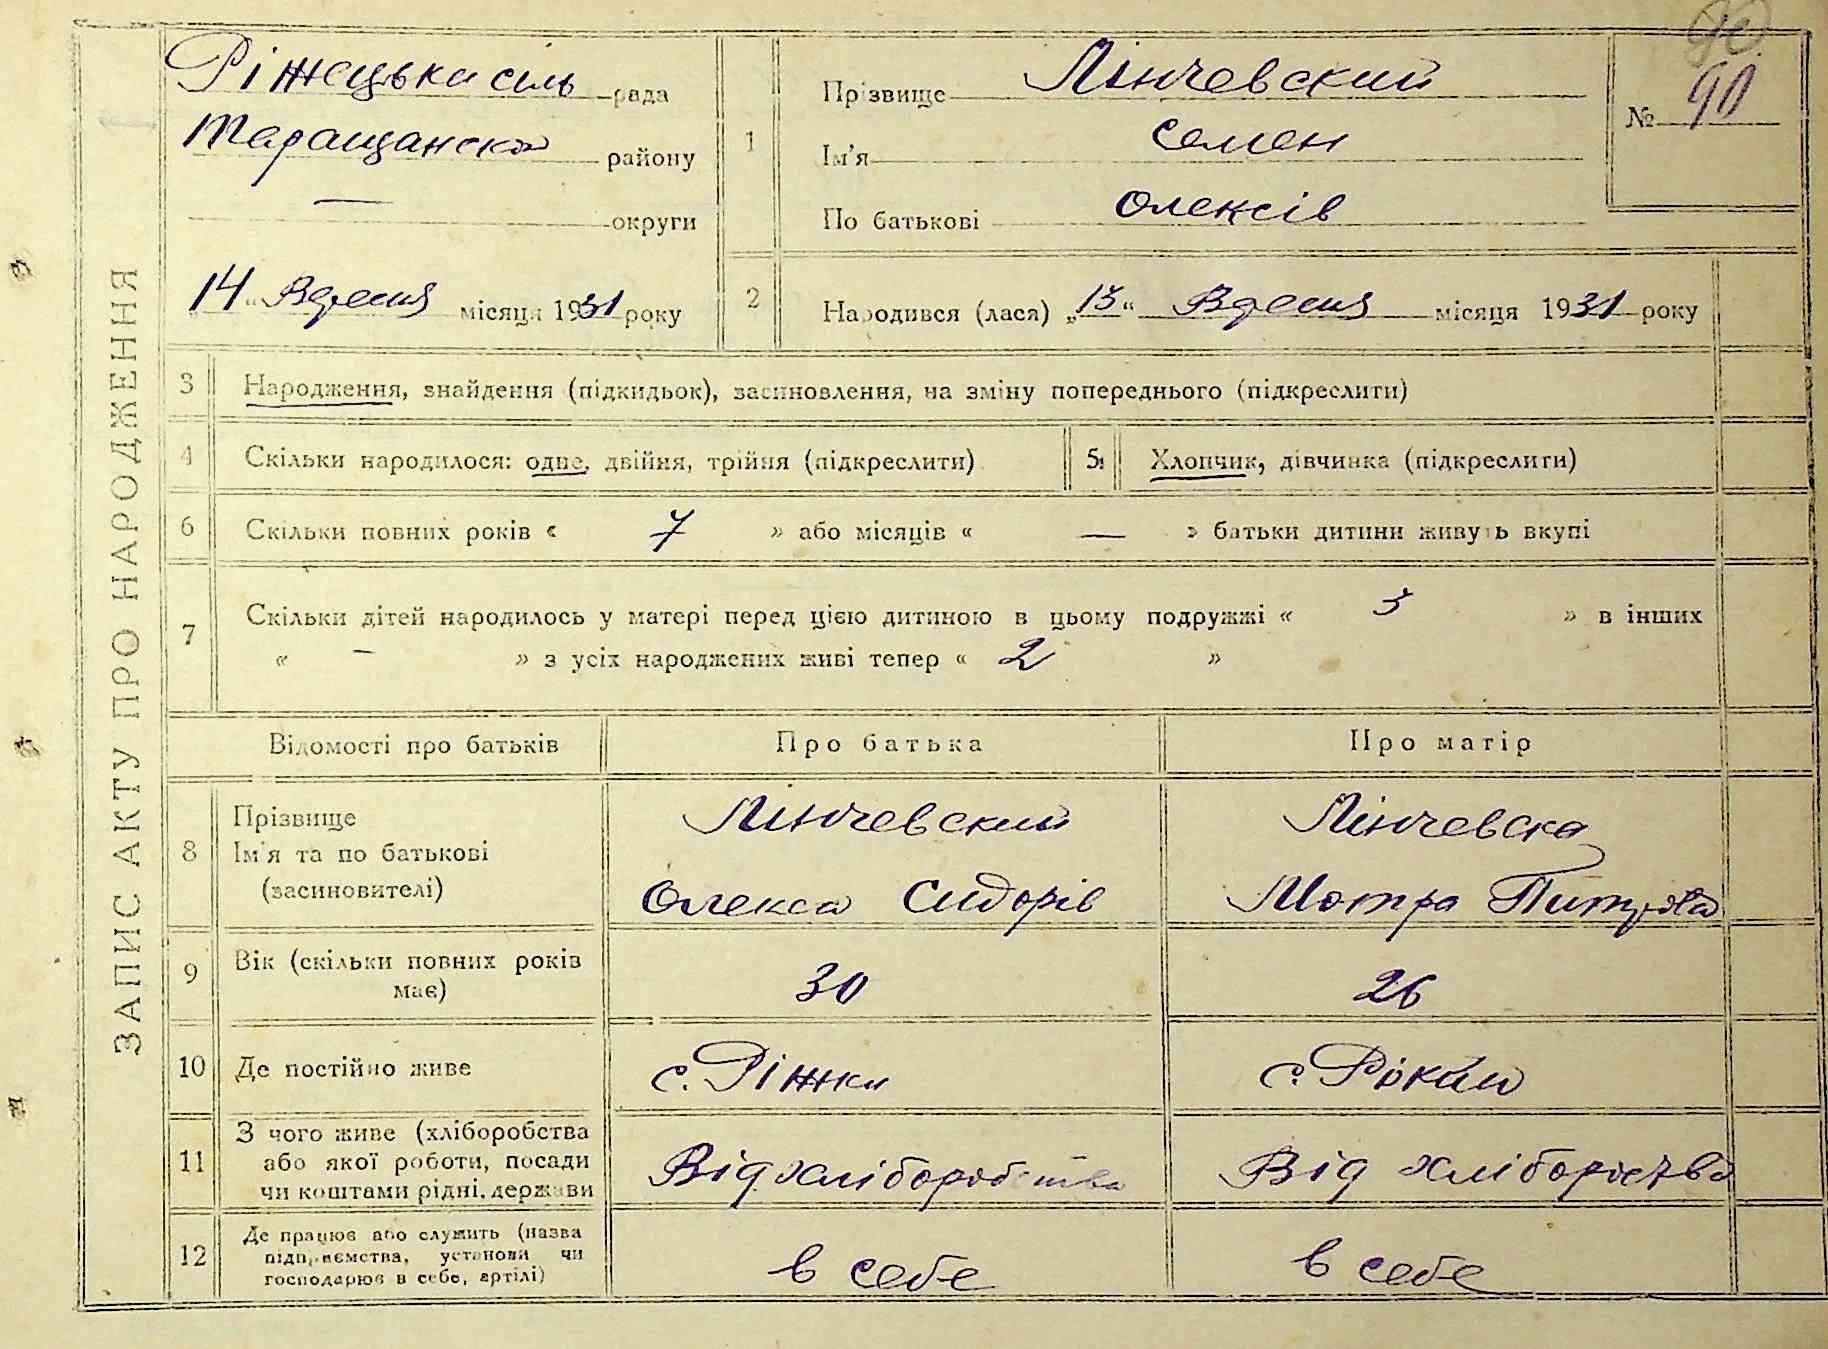 90
ЗАПИС АКТУ ПРО НАРОДЖЕННЯ
Ріжецька сіль рада
Таращанско району
— округи
14 " Вересня місяця 1931 року
1
Прізвище Лінчевский
Ім'я Семен
По батькові Олексів
№ 90
2 Народився (лася) „13“ Вересня місяця 1931 року
3 Народження, знайдення (підкидьок), засиновлення, на зміну попереднього (підкреслити)
4 Скільки народилося: одне, двійня, трійня (підкреслити) 5 Хлопчик, дівчинка (підкреслити)
6 Скільки повних років « 7 » або місяців « — » батьки дитини живуть вкупі
7 Скільки дітей народилось у матері перед цією дитиною в цьому подружжі « 3 » в інших
« – » з усіх народжених живі тепер « 2 »
Відомості про батьків Про батька Про матір
8 Прізвище
Ім'я та по батькові
(засиновителі)
Лінчевский
Олекса Сидорів
Лінчевска
Мотра
9 Вік (скільки повних років
має)
30 26
10 Де постійно живе с. Ріжки с.
11 З чого живе (хліборобства
або якої роботи, посади
чи коштами рідні, держави
Від хліборобства Від
12 Де працює або служить (назва
підприємства, установи чи
господарює в себе, артілі)
в себе в себе